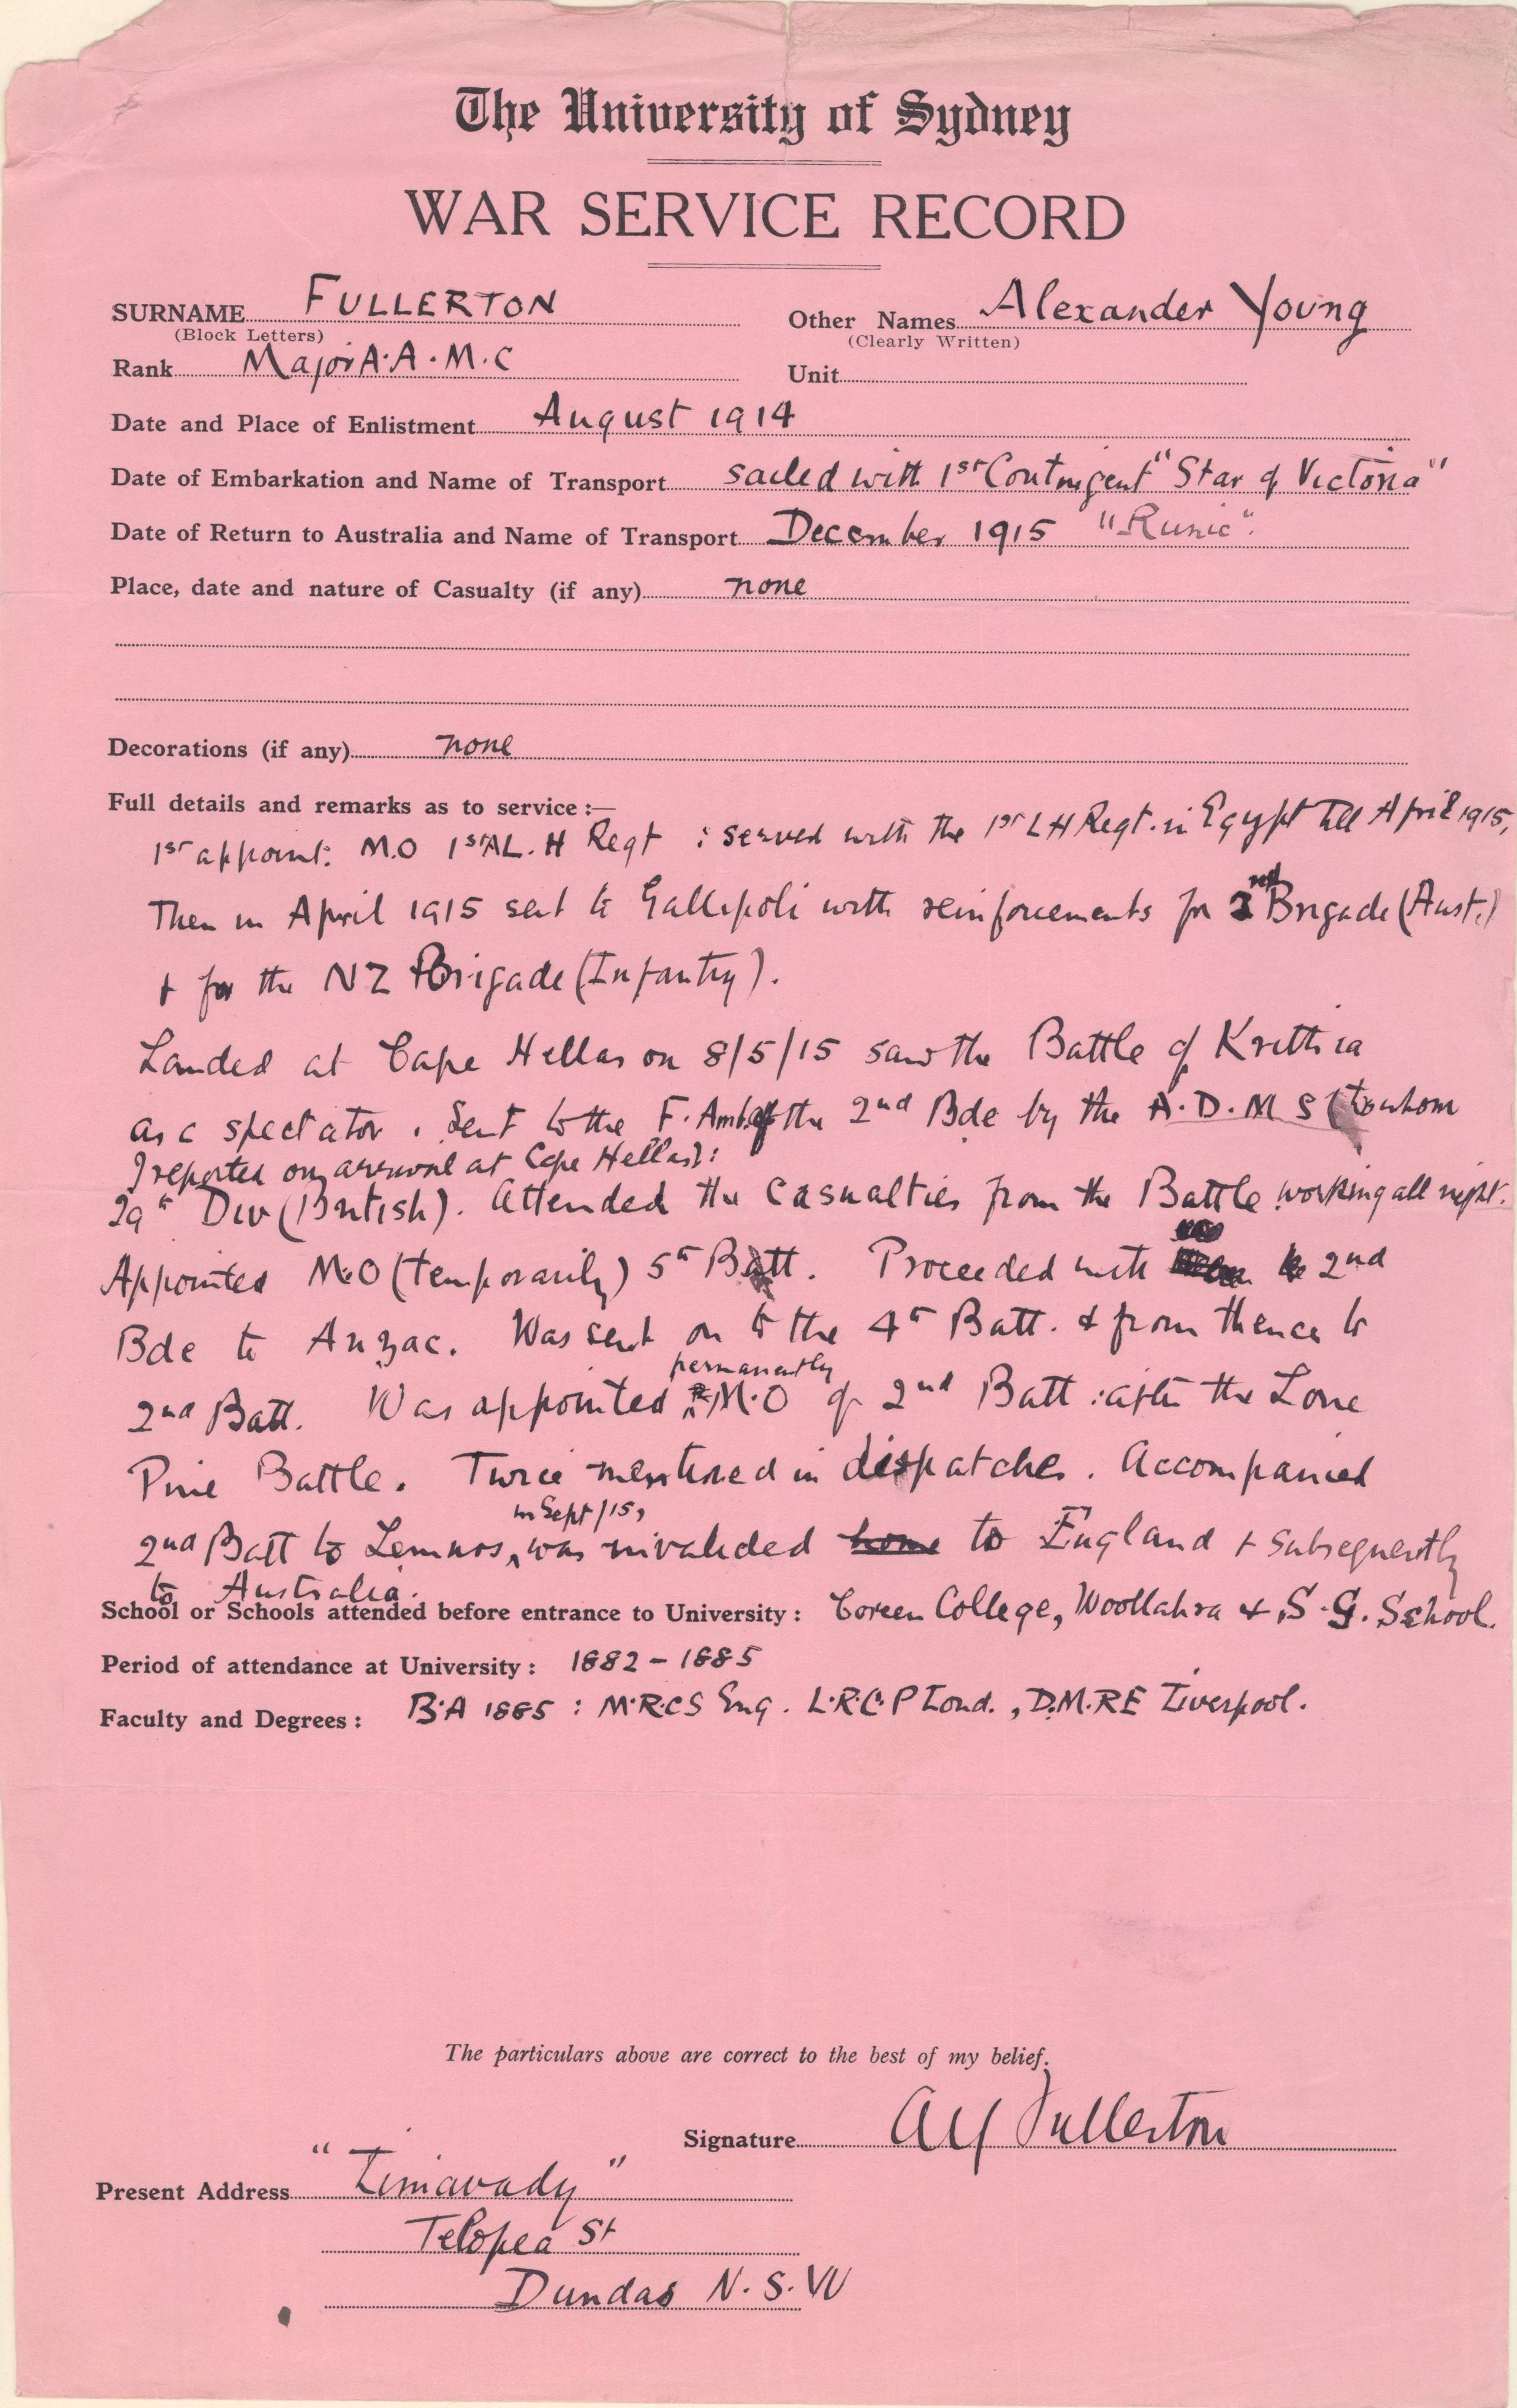 The University of Sydney
WAR SERVICE RECORD
SURNAME FULLERTON Other Names Alexander Young
(Block Letters) (Clearly Written)
Rank Major A.A.M.C Unit
Date and Place of Enlistment August 1914
Date of Embarkation and Name of Transport sailed with 1st Contingent "Star of Victoria"
Date of Return to Australia and Name of Transport December 1915 "Runic".
Place, date and nature of Casualty (if any) none
Decorations (if any) none
Full details and remarks as to service :—
1st appoint: M.O 1st A L. H Regt : served with the 1st L H Regt. in Egypt till April 1915,
Then in April 1915 sent to Gallipoli with reinforcements for 2nd Brigade (Aust.)
+ for the NZ Brigade (Infantry).
Landed at Cape Hellas on 8/5/15 saw the Battle of Krithia
as a spectator. Sent to the F. Amb. of the 2nd Bde by the A.D.M S (to whom
I reported on arrival at Cape Hellas):
29th Div (British). Attended the casualties from the Battle working all night.
Appointed M.O (temporarily) 5th Batt. Proceeded with 2nd
Bde to Anzac. Was sent on to the 4th Batt. & from thence to
permanently
2nd Batt. Was appointed M.O of 2nd Batt : after the Lone
Pine Battle. Twice mentioned in dispatches. Accompanied
in Sept/15,
2nd Batt to Lemnos, was invalided home to England + subsequently
to Australia.
School or Schools attended before entrance to University : Coreen College, Woollahra & S. G. School.
Period of attendance at University : 1882 - 1885
Faculty and Degrees : B.A 1885 : M.R.C.S Eng. L.R.C.P Lond. , D.M.R.E Liverpool.
The particulars above are correct to the best of my belief.
Signature A Y Fullerton
Present Address "Limavady"
Telopea St
Dundas N.S.W